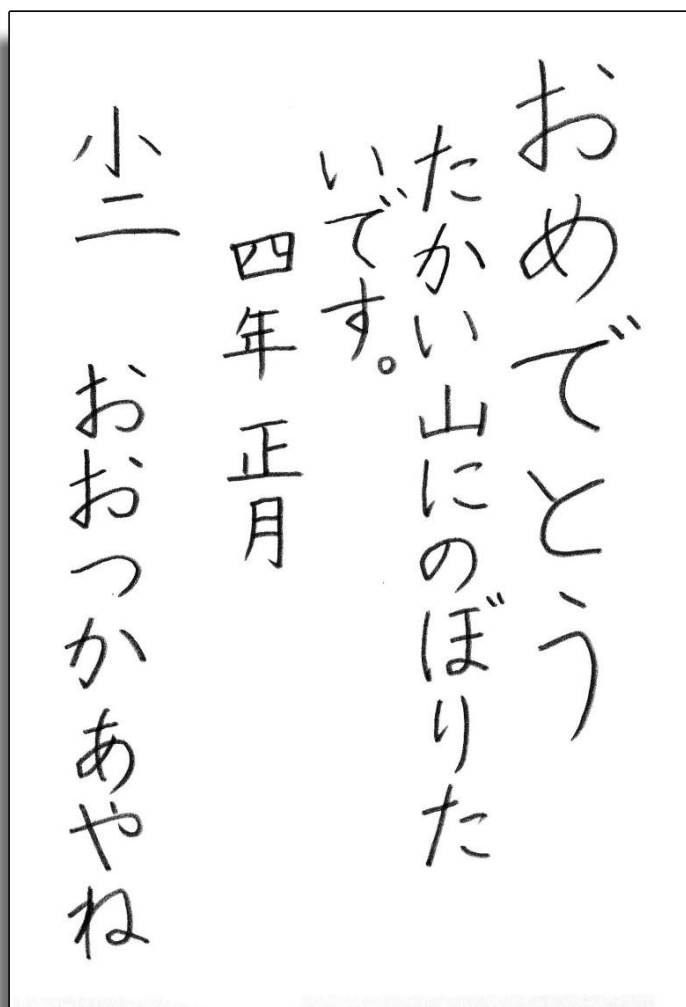 おめでとう
たかい山にのぼりた
いです。
四年 正月
小二 おおつかあやね